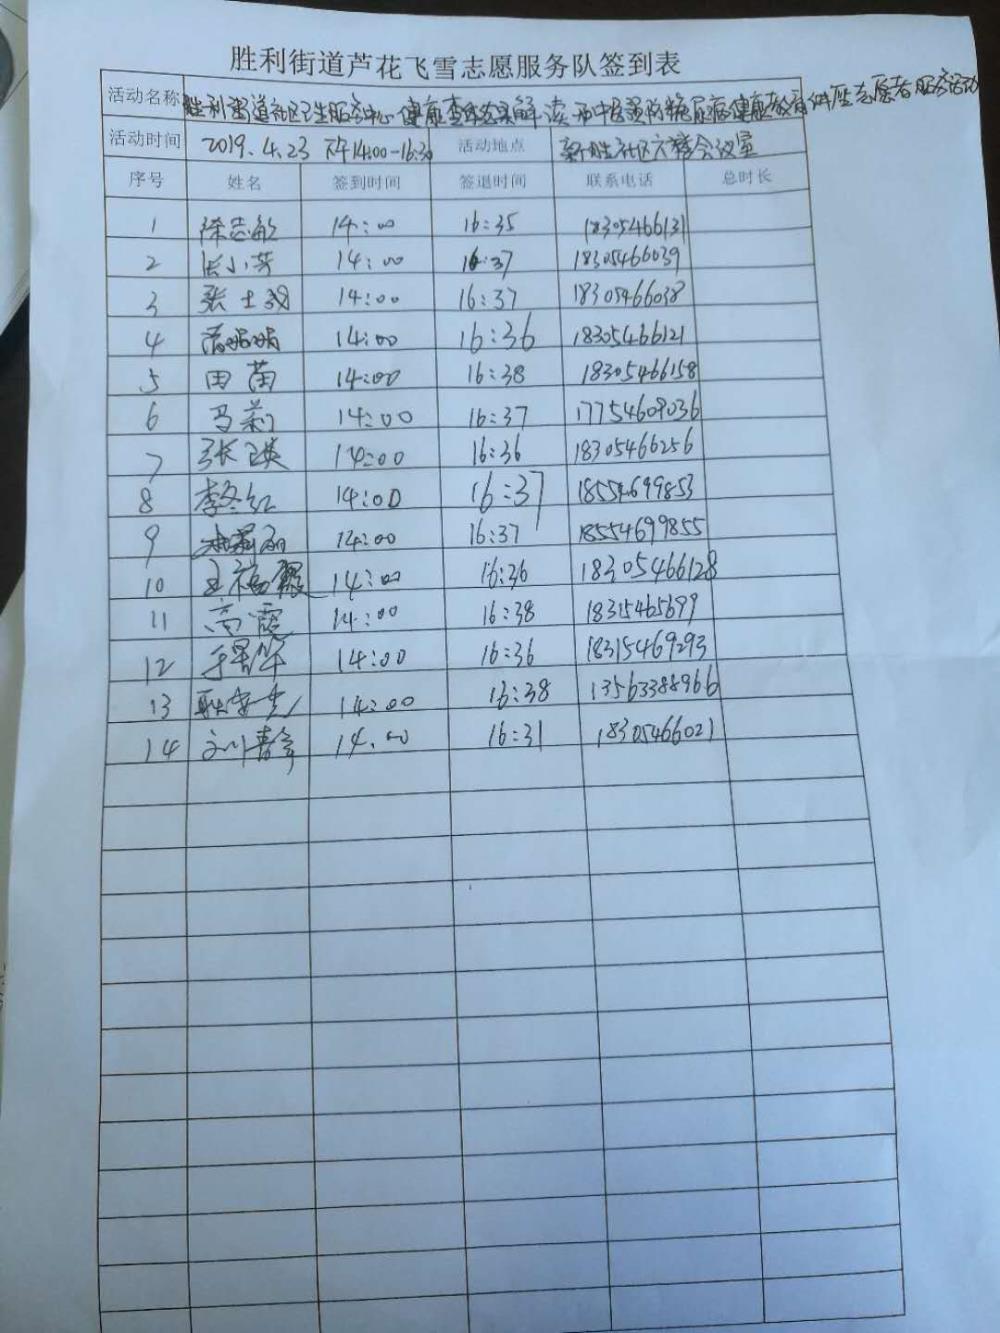 胜利街道芦花飞雪志愿服务队签到表
活动名称 胜利街道社区卫生服务中心健康查体结果解读和中医预防糖尿病健康教育讲座志愿者服务活动
活动时间 2019.4.23 下午14:00-16:30 活动地点 新胜社区六楼会议室
序号 姓名 签到时间 签退时间 联系电话 总时长
1 徐志敏 14:00 16:35 18305466131
2 张小芳 14:00 16:37 18305466039
3 张士
14:00 16:37 18305466038
4 蒲娟娟 14:00 16:36 18305466121
5 田苗 14:00 16:38 18305466158
6 马莉 14:00 16:37 17754609036
7 张卫英 14:00 16:36 18305466256
8 李冬红 14:00 16:37 18554699853
9 14:00 16:37 18554699855
10 王福霞 14:00 16:36 18305466128
11 高霞 14:00 16:38 18315465699
12 14:00 16:36 18315469293
13 14:00 16:38 13563388966
14 14:00 16:31 18305466021